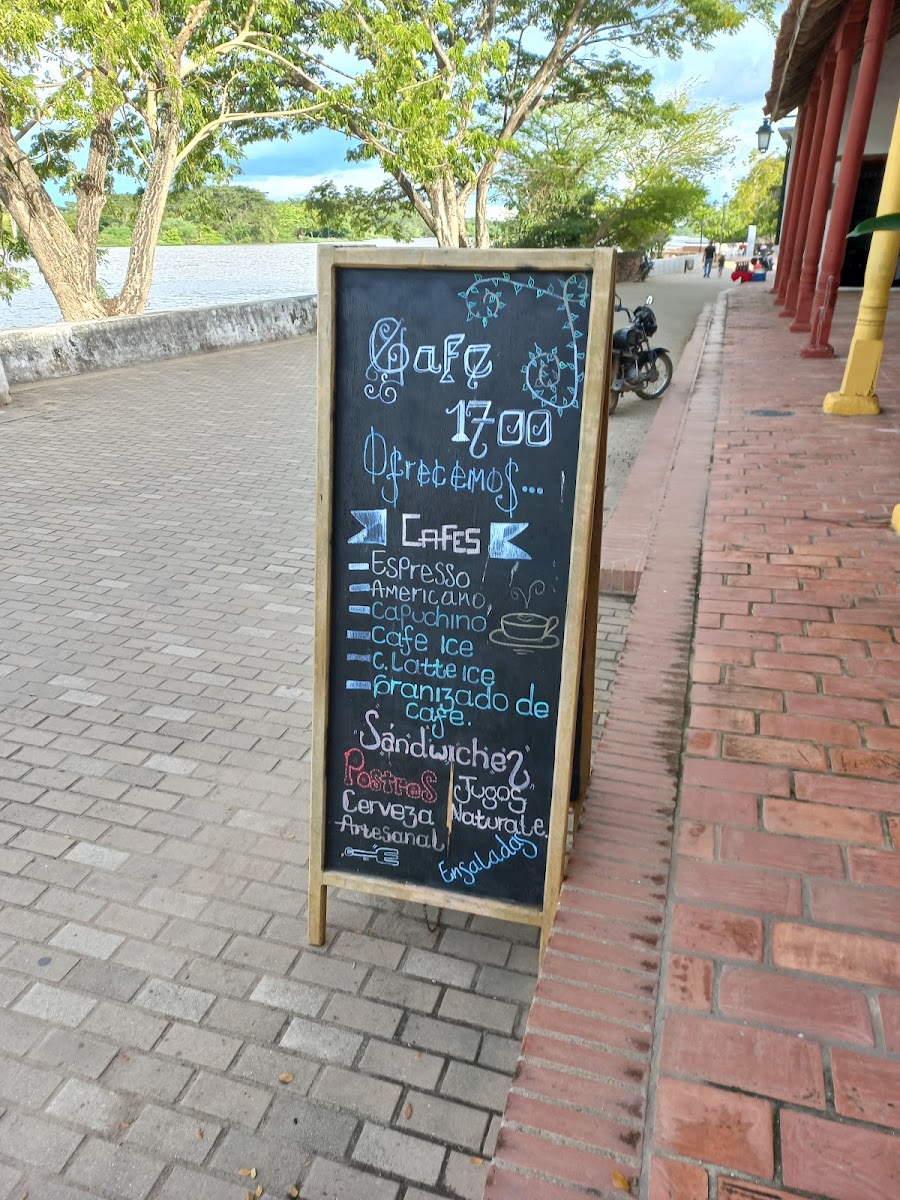 Cafe
1700
Ofrecemos...
CAFES
Espresso
Americano
Capuchino
Cafe Ice
C. Latte Ice
Granizado de
cafe.
Sandwiches
Postres
Jugos
Cerveza
Naturale.
Artesanal
Ensaladas